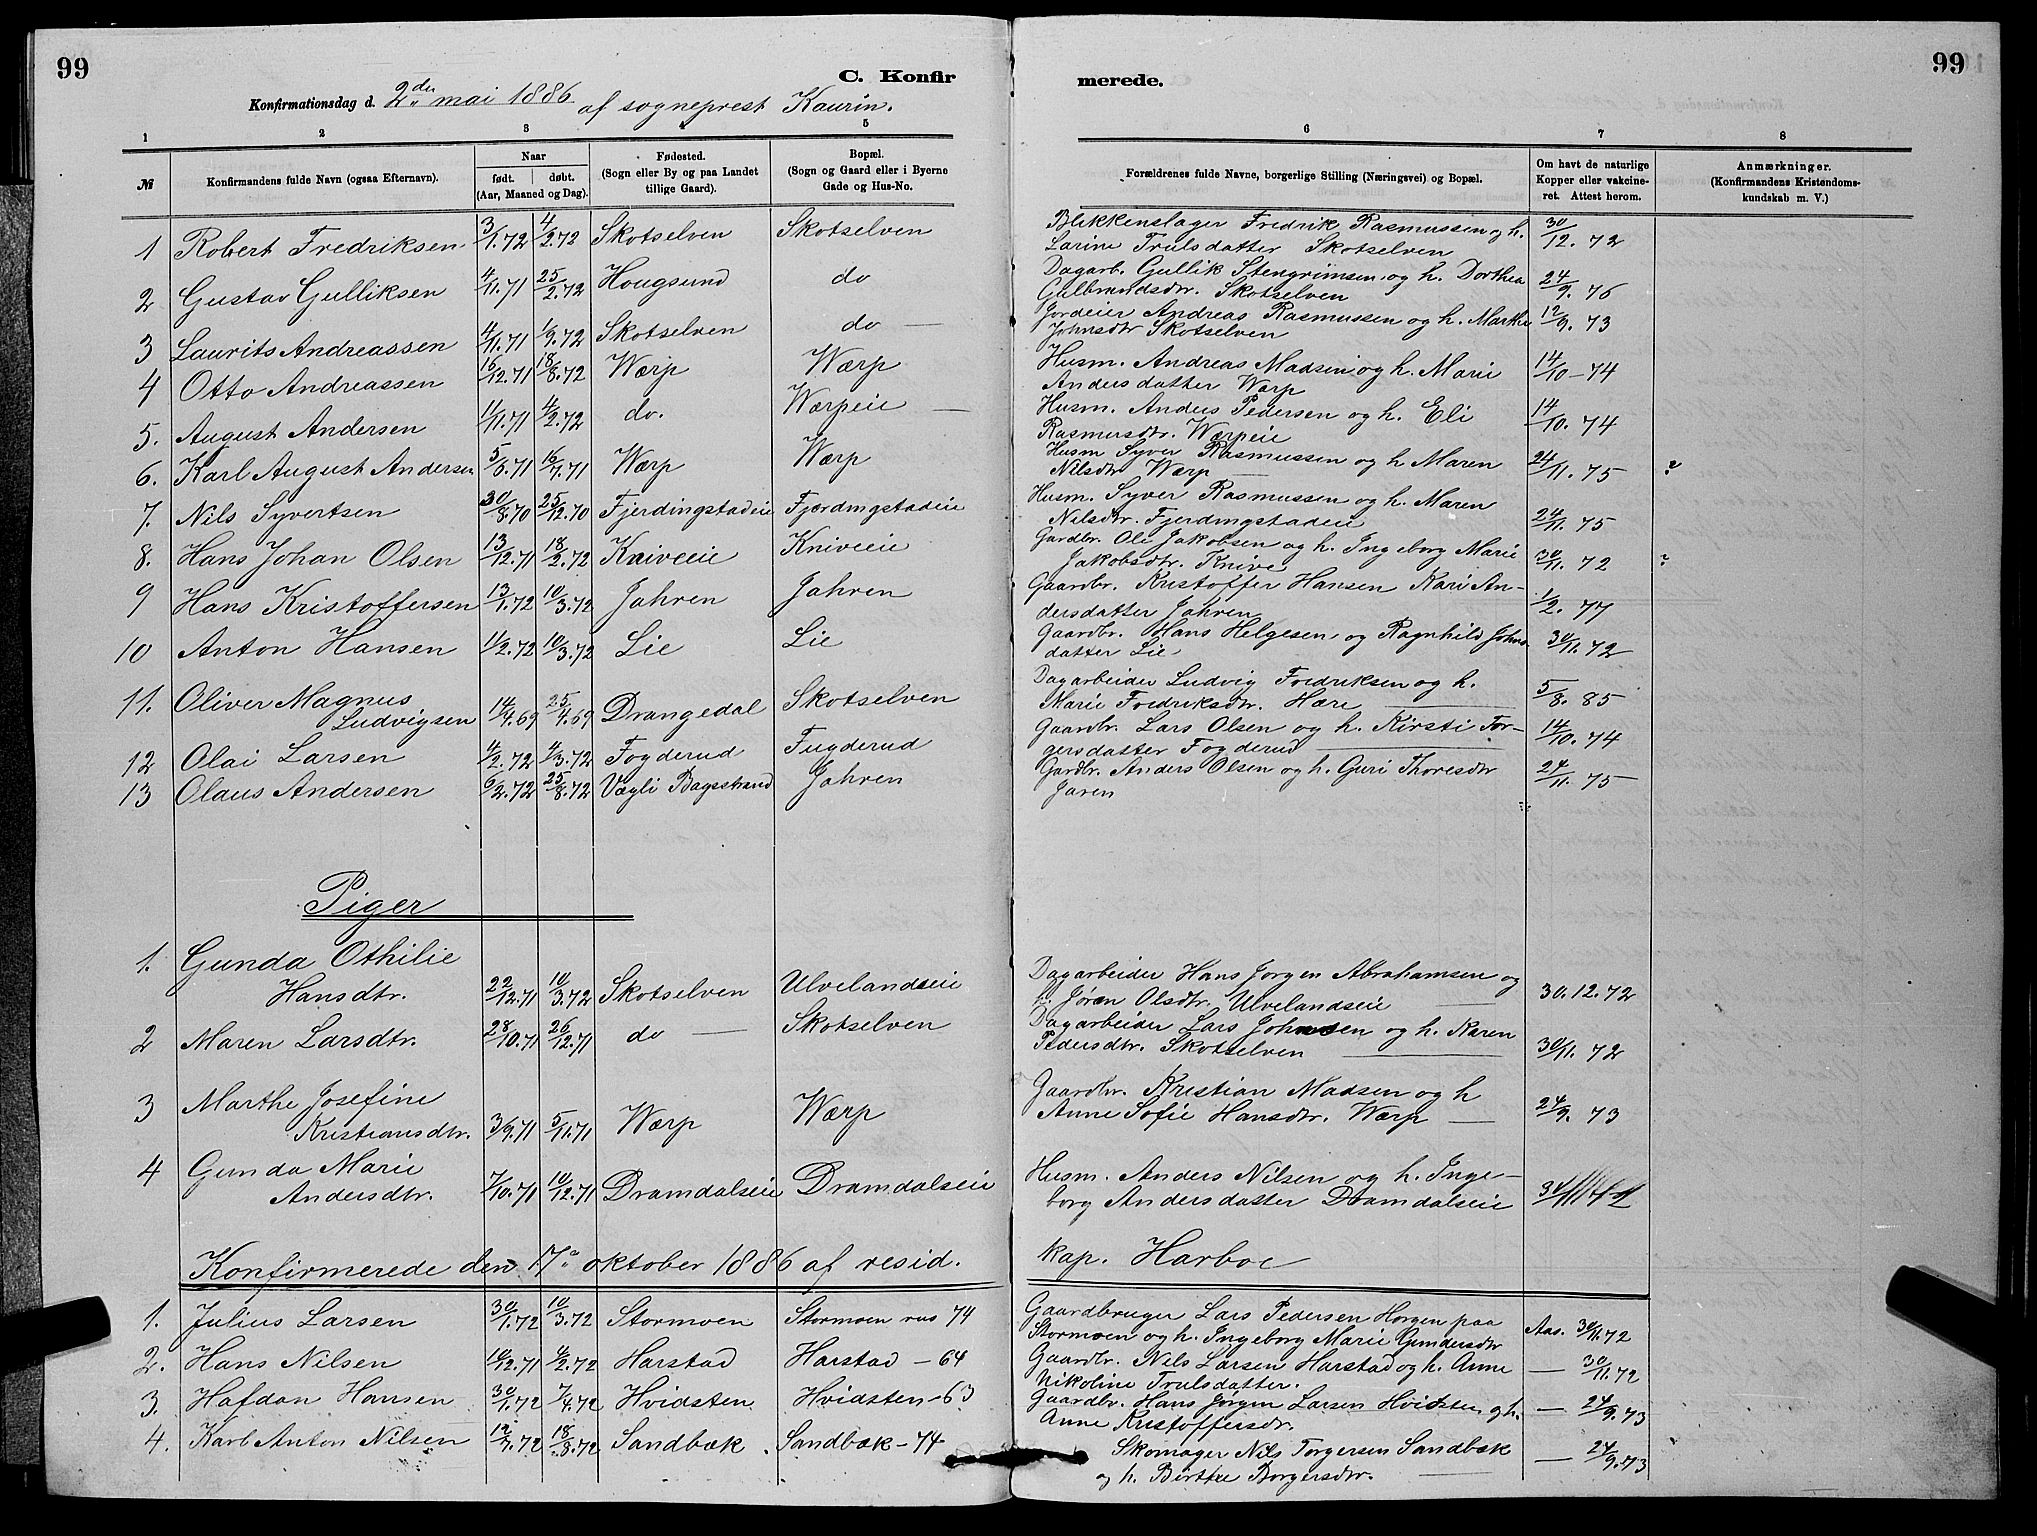 99
C. Konfir
Konfirmationsdag d. 2den mai 1886 af sogneprest Kaurin.
1 2 3 4 5
№
Konfirmandens fulde Navn (ogsaa Efternavn).
Naar
født. døbt.
(Aar, Maaned og Dag).
Fødested.
(Sogn eller By og paa Landet
tillige Gaard).
Bopæl.
(Sogn og Gaard eller i Byerne
Gade og Hus-No.
1 Robert Fredriksen 3/1.72 4/2.72 Skotselven Skotselven
2 Gustav Gulliksen 4/11.71 25/2.72 Hougsund do
3 Laurits Andreassen 4/11.71 1/9.72 Skotselven do —
4 Otto Andreassen 16/12.71 18/8.72 Værp Værp
5. August Andersen 11/11.71 4/2.72 do. Værpeie —
6. Karl August Andersen 5/6.71 16/7.71 Værp Værp
7. Nils Syvertsen 30/8.70 25/12.70 Fjerdingstadeie Fjærdingstadeie
8. Hans Johan Olsen 13/12.71 18/2.72 Kniveeie Kniveeie
9 Hans Kristoffersen 13/1.72 10/3.72 Jahren Jahren
10 Anton Hansen 11/2.72 10/3.72 Lie Lie
11. Oliver Magnus
Ludvigsen 14/4.69 25/4.69 Drangedal Skotselven
12 Olai Larsen 4/2.72 4/3.72 Fogderud Fugderud
13 Olaus Andersen 6/2.72 25/8.72 Vægli Bagsstrand Jahren
Piger
1. Gunda Othilie
Hansdtr. 22/12.71 10/3.72 Skotselven Ulvelandseie
2 Maren Larsdtr. 28/10.71 26/12.71 do — Skotselven
3 Marthe Josefine
Kristiansdtr. 3/9.71 5/11.71 Værp Værp
4 Gunda Marie
Andersdtr. 7/10.71 10/12.71 Dramdalseie Dramdalseie
Konfirmerede den 17de oktober 1886 af resid.
1. Julius Larsen 30/1.72 10/3.72 Stormoen Stormoen rus 74
2. Hans Nilsen 4/2.72 Harstad Harstad – 64
3. Hafdan Hansen 30/1.72 7/4.72 Hvidsten Hvidsten – 63
4. Karl Anton Nilsen 12/7.72 18/8.72 Sandbæk Sandbæk – 74
99
merede.
6 7 8
Forældrenes fulde Navne, borgerlige Stilling (Næringsvei) og Bopæl.
Om havt de naturlige
Kopper eller vakcine-
ret. Attest herom.
Anmærkninger.
(Konfirmandens Kristendoms-
kundskab m. V.)
Blikkenslager Fredrik Rasmussen og h.
Larine Trulsdatter Skotselven 30/12. 72
Dagarb. Gullik Stengrimsen og h. Dorthea
Gulbrandsdtr. Skotselven 24/9. 76
Jordeier Andreas Rasmussen og h. Marthe
Johnsdtr Skotselven 12/9. 73
Husm. Andreas Madsen og h. Marie
Andersdatter Værp 14/10 – 74
Husm. Anders Pedersen og h. Eli
Rasmusdtr. Værpeie 14/10. 74
Husm Syver Rasmussen og h Maren
Nilsdtr Værp — 24/11. 75 ?
Husm. Syver Rasmussen og h. Maren
Nilsdtr. Fjerdingstadeie 24/11. 75
Gardbr. Ole Jakobsen og h. Ingeborg Marie
Jakobsdtr. Knive 30/11. 72 ?
Gaardbr. Kristoffer Hansen Kari An-
dersdatter Jahren 1/2. 77
Gaardbr. Hans Helgesen og Ragnhild Johns-
datter Lie 30/11. 72
Dagarbeider Ludvig Fredriksen og h.
Marie Fredriksdtr. Hære — 5/8. 85
Gaardbr. Lars Olsen og h. Kirsti Tor-
gersdatter Fogderud — 14/10. 74
Gardbr. Anders Olsen og h. Guri Thoresdtr
Jaren 24/11. 75
Dagarbeider Hans Jørgen Abrahamsen og
h. Jøren Olsdtr. Ulvelandseie — 30.12.72
Dagarbeider Lars Johnsen og h. Karen
Pedersdtr. Skotselven — 30/11. 72
Gaardbr. Kristian Madsen og h
Anne Sofie Hansdtr. Værp — 24/9. 73
Husm. Anders Nilsen og h. Inge-
borg Andersdatter Dramdalseie
kap. Harboe
Gaardbruger Lars Pedersen Horgen paa
Stormoen og h. Ingeborg Marie Gundersdtr Aas. 30/11.72
Gaardbr. Nils Larsen Harstad og h. Anne
Nikoline Trulsdatter. — 30/11.72
Gaardbr. Hans Jørgen Larsen Hvidsten og h.
Anne Kristoffersdr. — 24/9.73
Skomager Nils Torgersen Sandbæk
og h. Birthe Borgersdtr. — 24/9.73